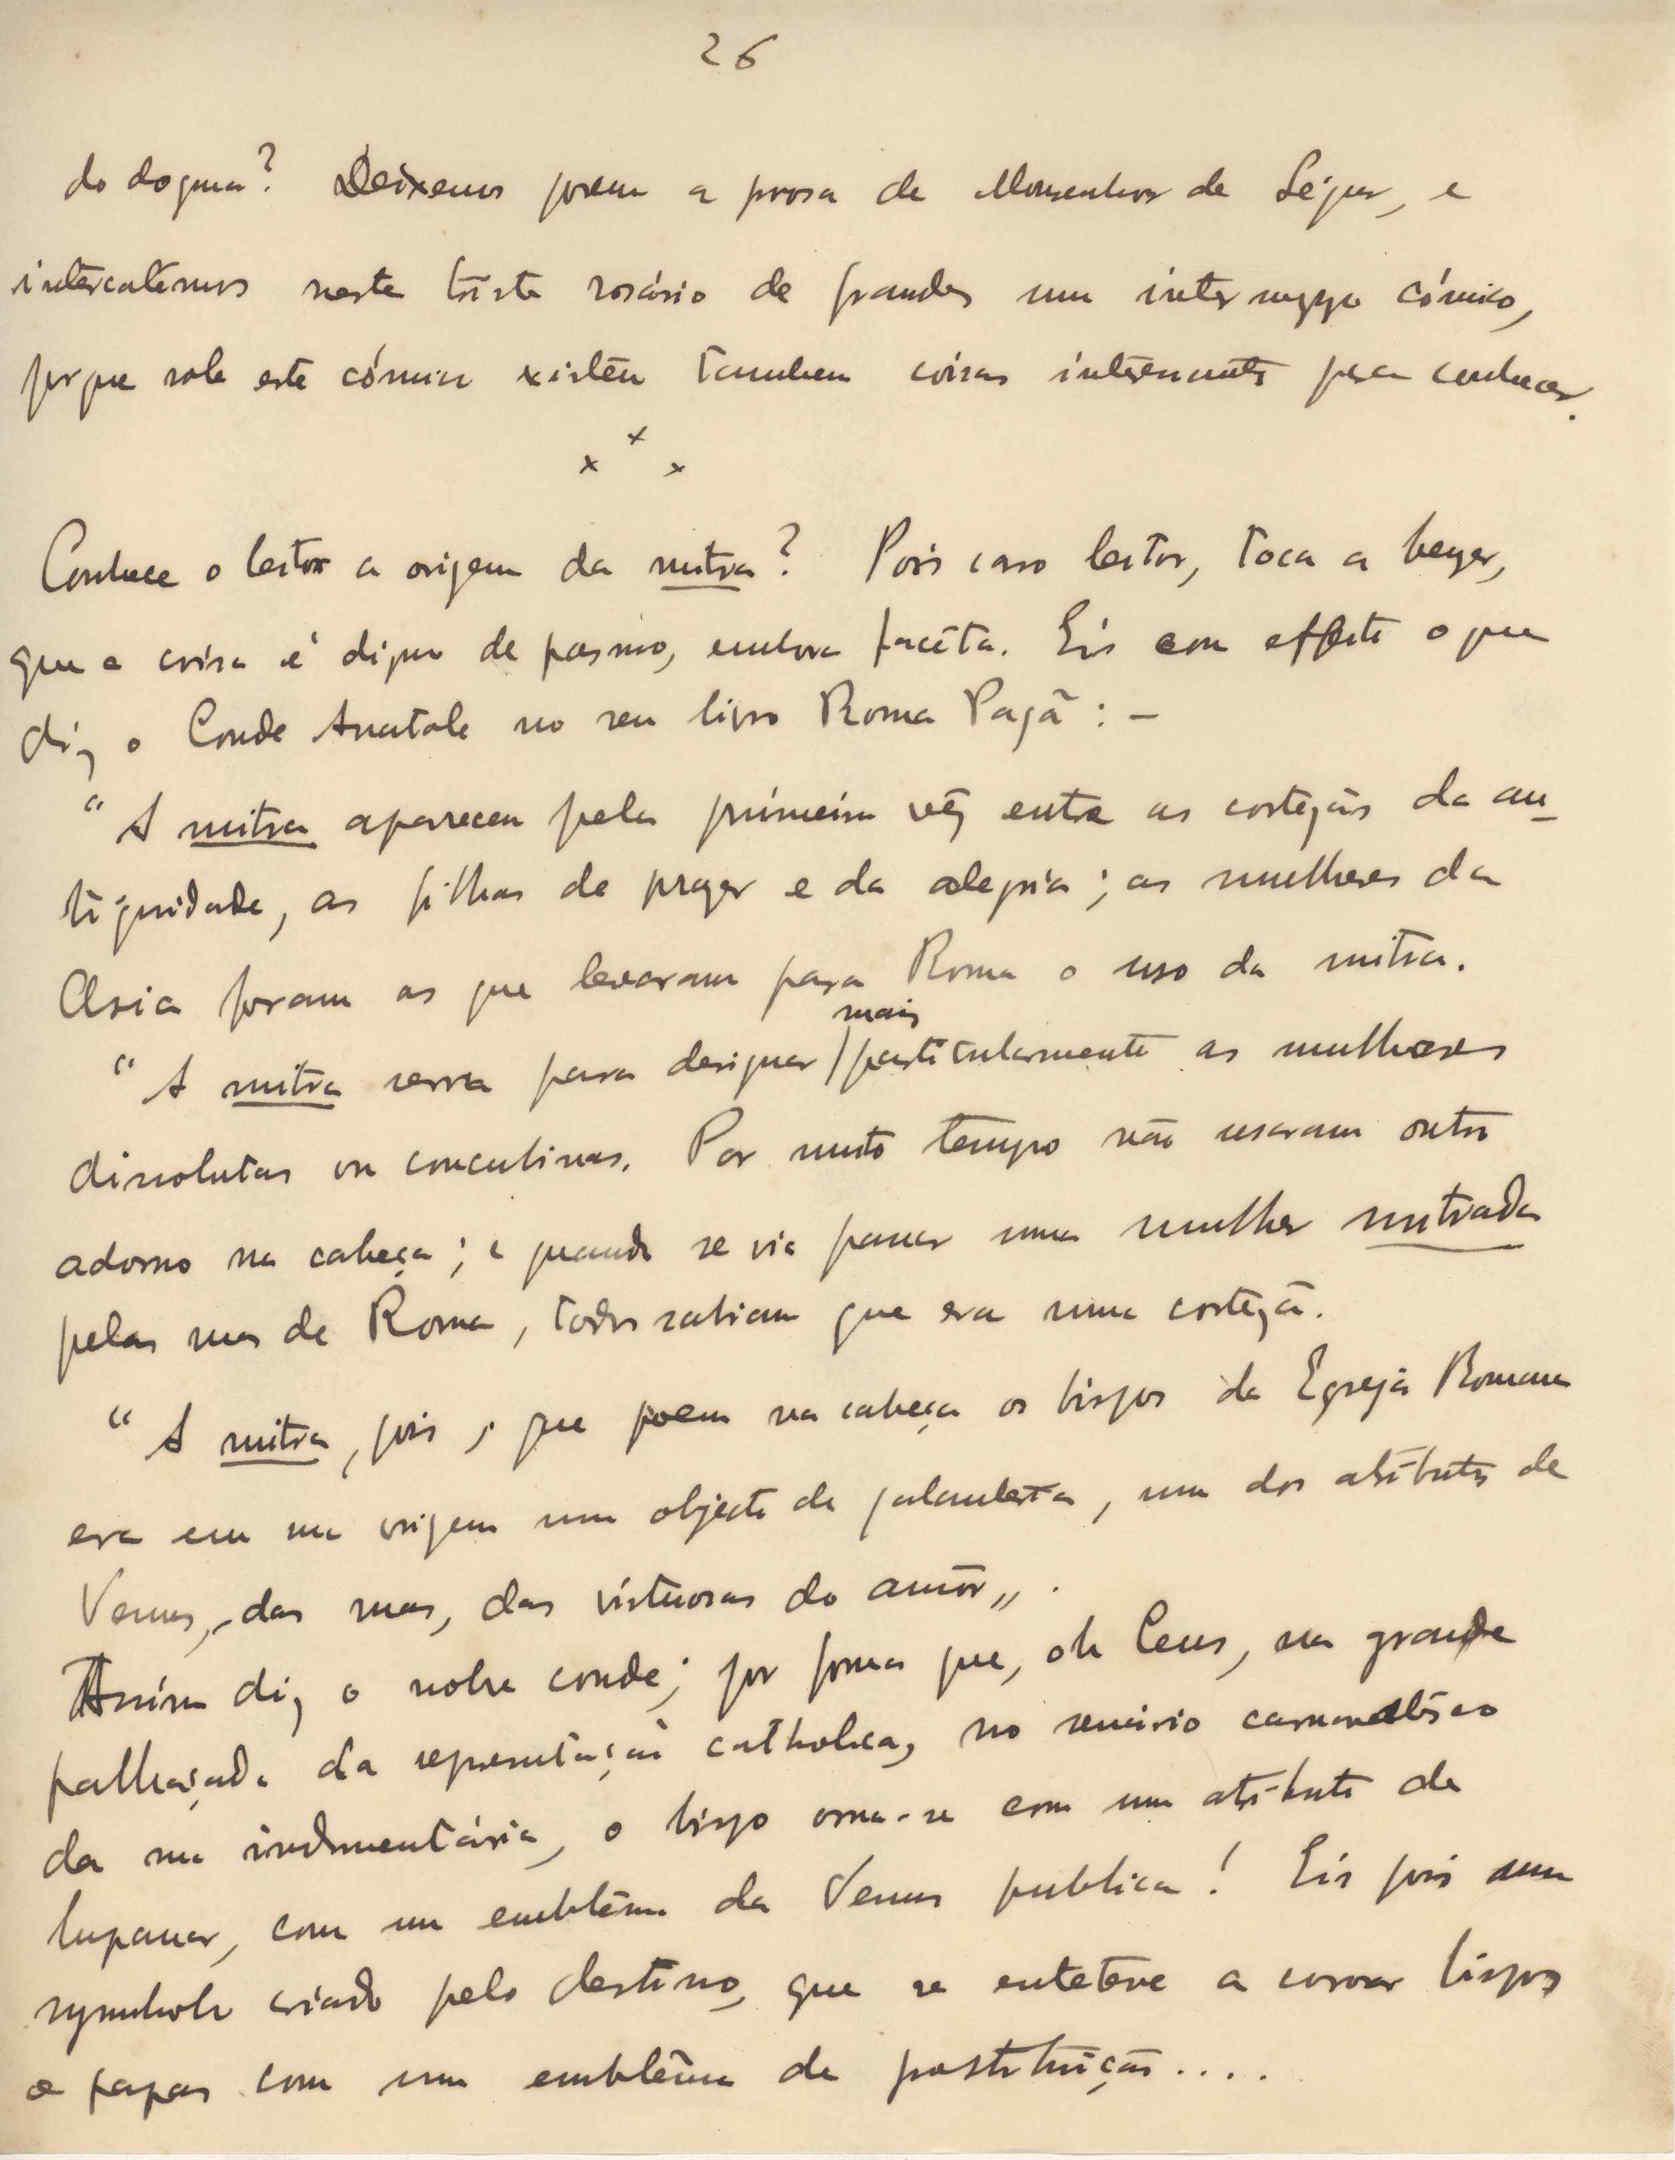 26
do dogma? Deixemos porem a prosa de Monsenhor de Ségur, e
intercalemos neste triste rosário de fraudes um intermezzo cómico,
porque sob este cómico existem tambem coisas interessantes para conhecer.
x x x
Conhece o leitor a origem da mitra? Pois caro leitor, toca a benzer,
que a coisa é digna de pasmo, embora facêta. Eis com effeito o que
diz o Conde Anatole no seu livro Roma Pagã: –
"A mitra apareceu pela primeira vêz entre as cortezãs da an-
tiguidade, as filhas do prazer e da alegria; as mulheres da
Asia foram as que levaram para Roma o uso da mitra.
"A mitra servia para designar mais particularmente as mulheres
dissolutas ou concubinas. Por muito tempo não usaram outro
adorno na cabeça; e quando se via passar uma mulher mitrada
pelas ruas de Roma, todos sabiam que era uma cortezã.
"A mitra, pois, que poem na cabeça os bispos da Egreja Romana
era em sua origem um objecto de galanteria, um dos atributos de
Venus, das ruas, das virtuosas do amôr„.
Assim diz o nobre conde; por forma que, oh Ceus, na grande
palhaçada da representação catholica, no scenário carnavalêsco
da sua indumentária, o bispo orna-se com um atributo de
lupanar, com um emblêma da Venus publica! Eis pois um
symbolo criado pelo destino, que se enteteve a coroar bispos
e papas com um emblêma de prostituição....